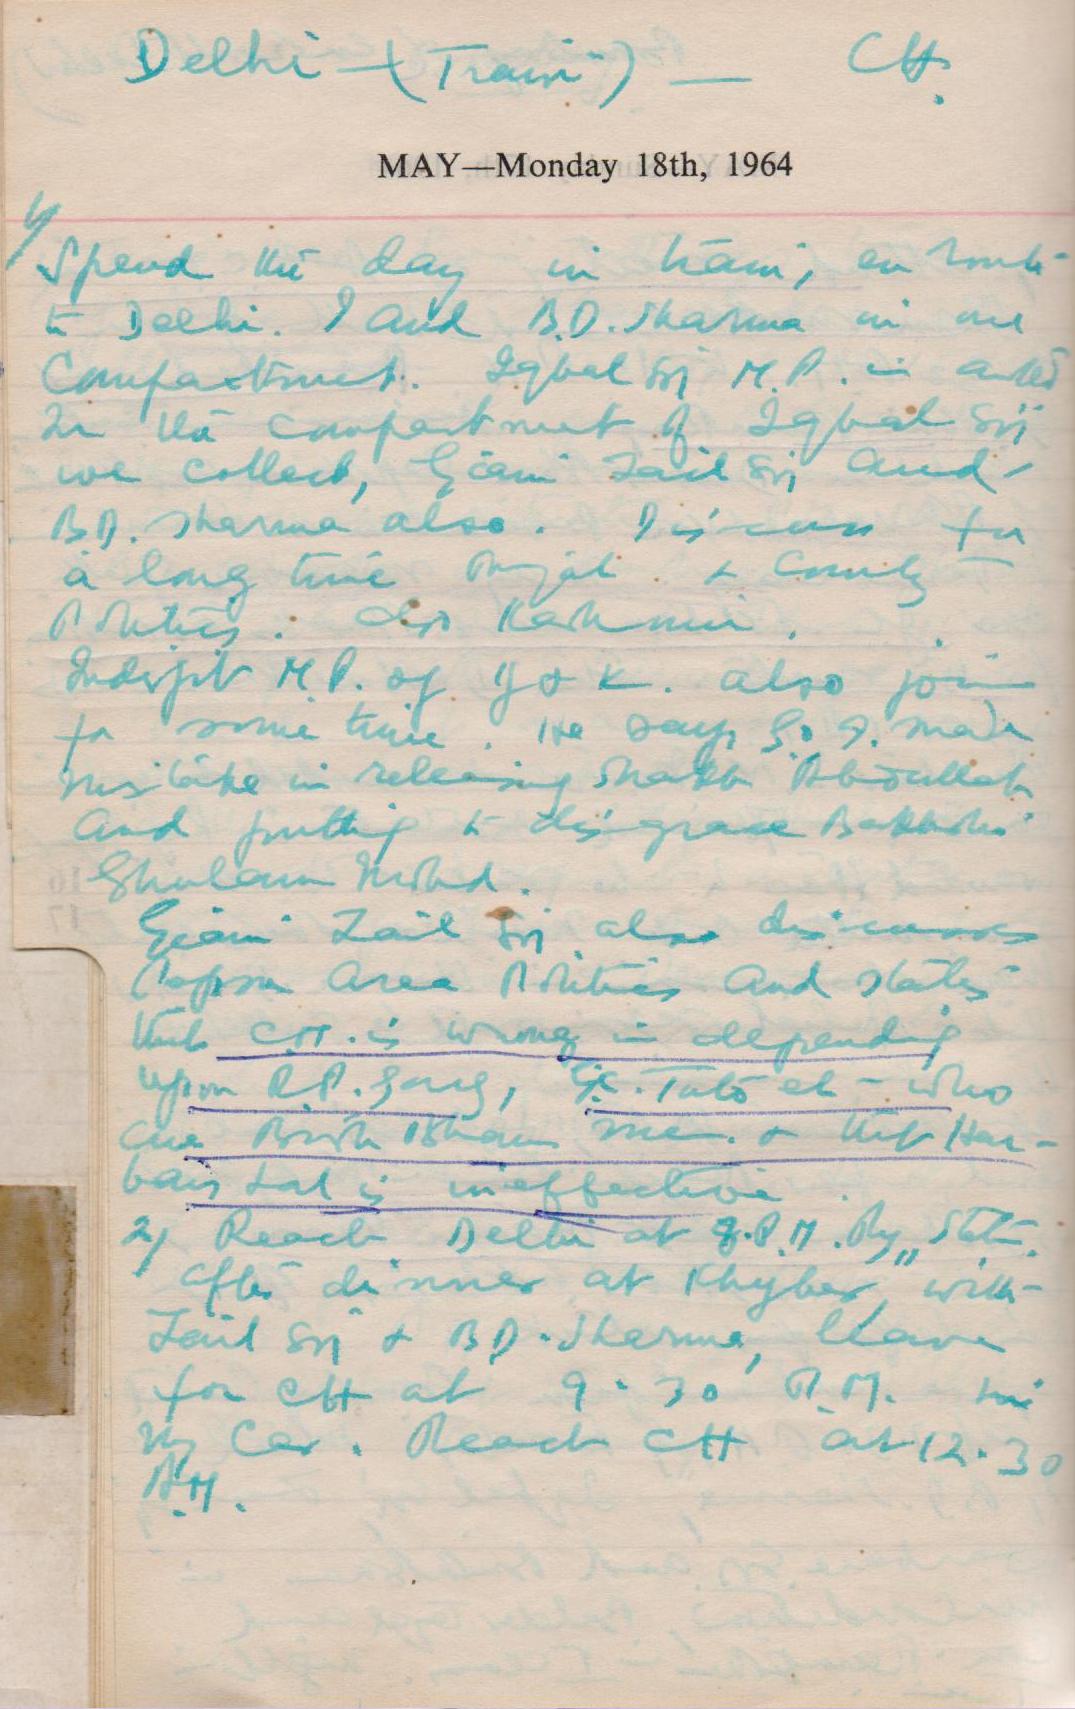 Delhi — (Train) — CH.
MAY—Monday 18th, 1964
1/
Spend the day in train, en route
to Delhi. I and B.D. Sharma in one
Compartment. Iqbal Sij M.P. in
In the compartment of Iqbal Sij
we collect, Giani Zail Sij and
B.D. Sharma also. Discuss for
a long time Punjab & County
Politics. also Kashmir.
Inderjit M.P. of J & K. also join
for some time. He says G.O.I. made
mistake in releasing Shaikh Abdullah
and putting to disgrace Bakhshi
Ghulam Mohd.
Giani Zail Sij also discusses
Pepsu area Politics and states
that C.M. is wrong in depending
upon R.P. Garg, Tuto etc who
are Brish Bhan men & that Har-
bans Lal is ineffective.
2/ Reach Delhi at 8. P.M. Ry. Statn.
after dinner at "Khyber" with
Zail Sij & B.D. Sharma, leave
for CH at 9.30 P.M. in
my Car. Reach CH at 12.30
A.M.